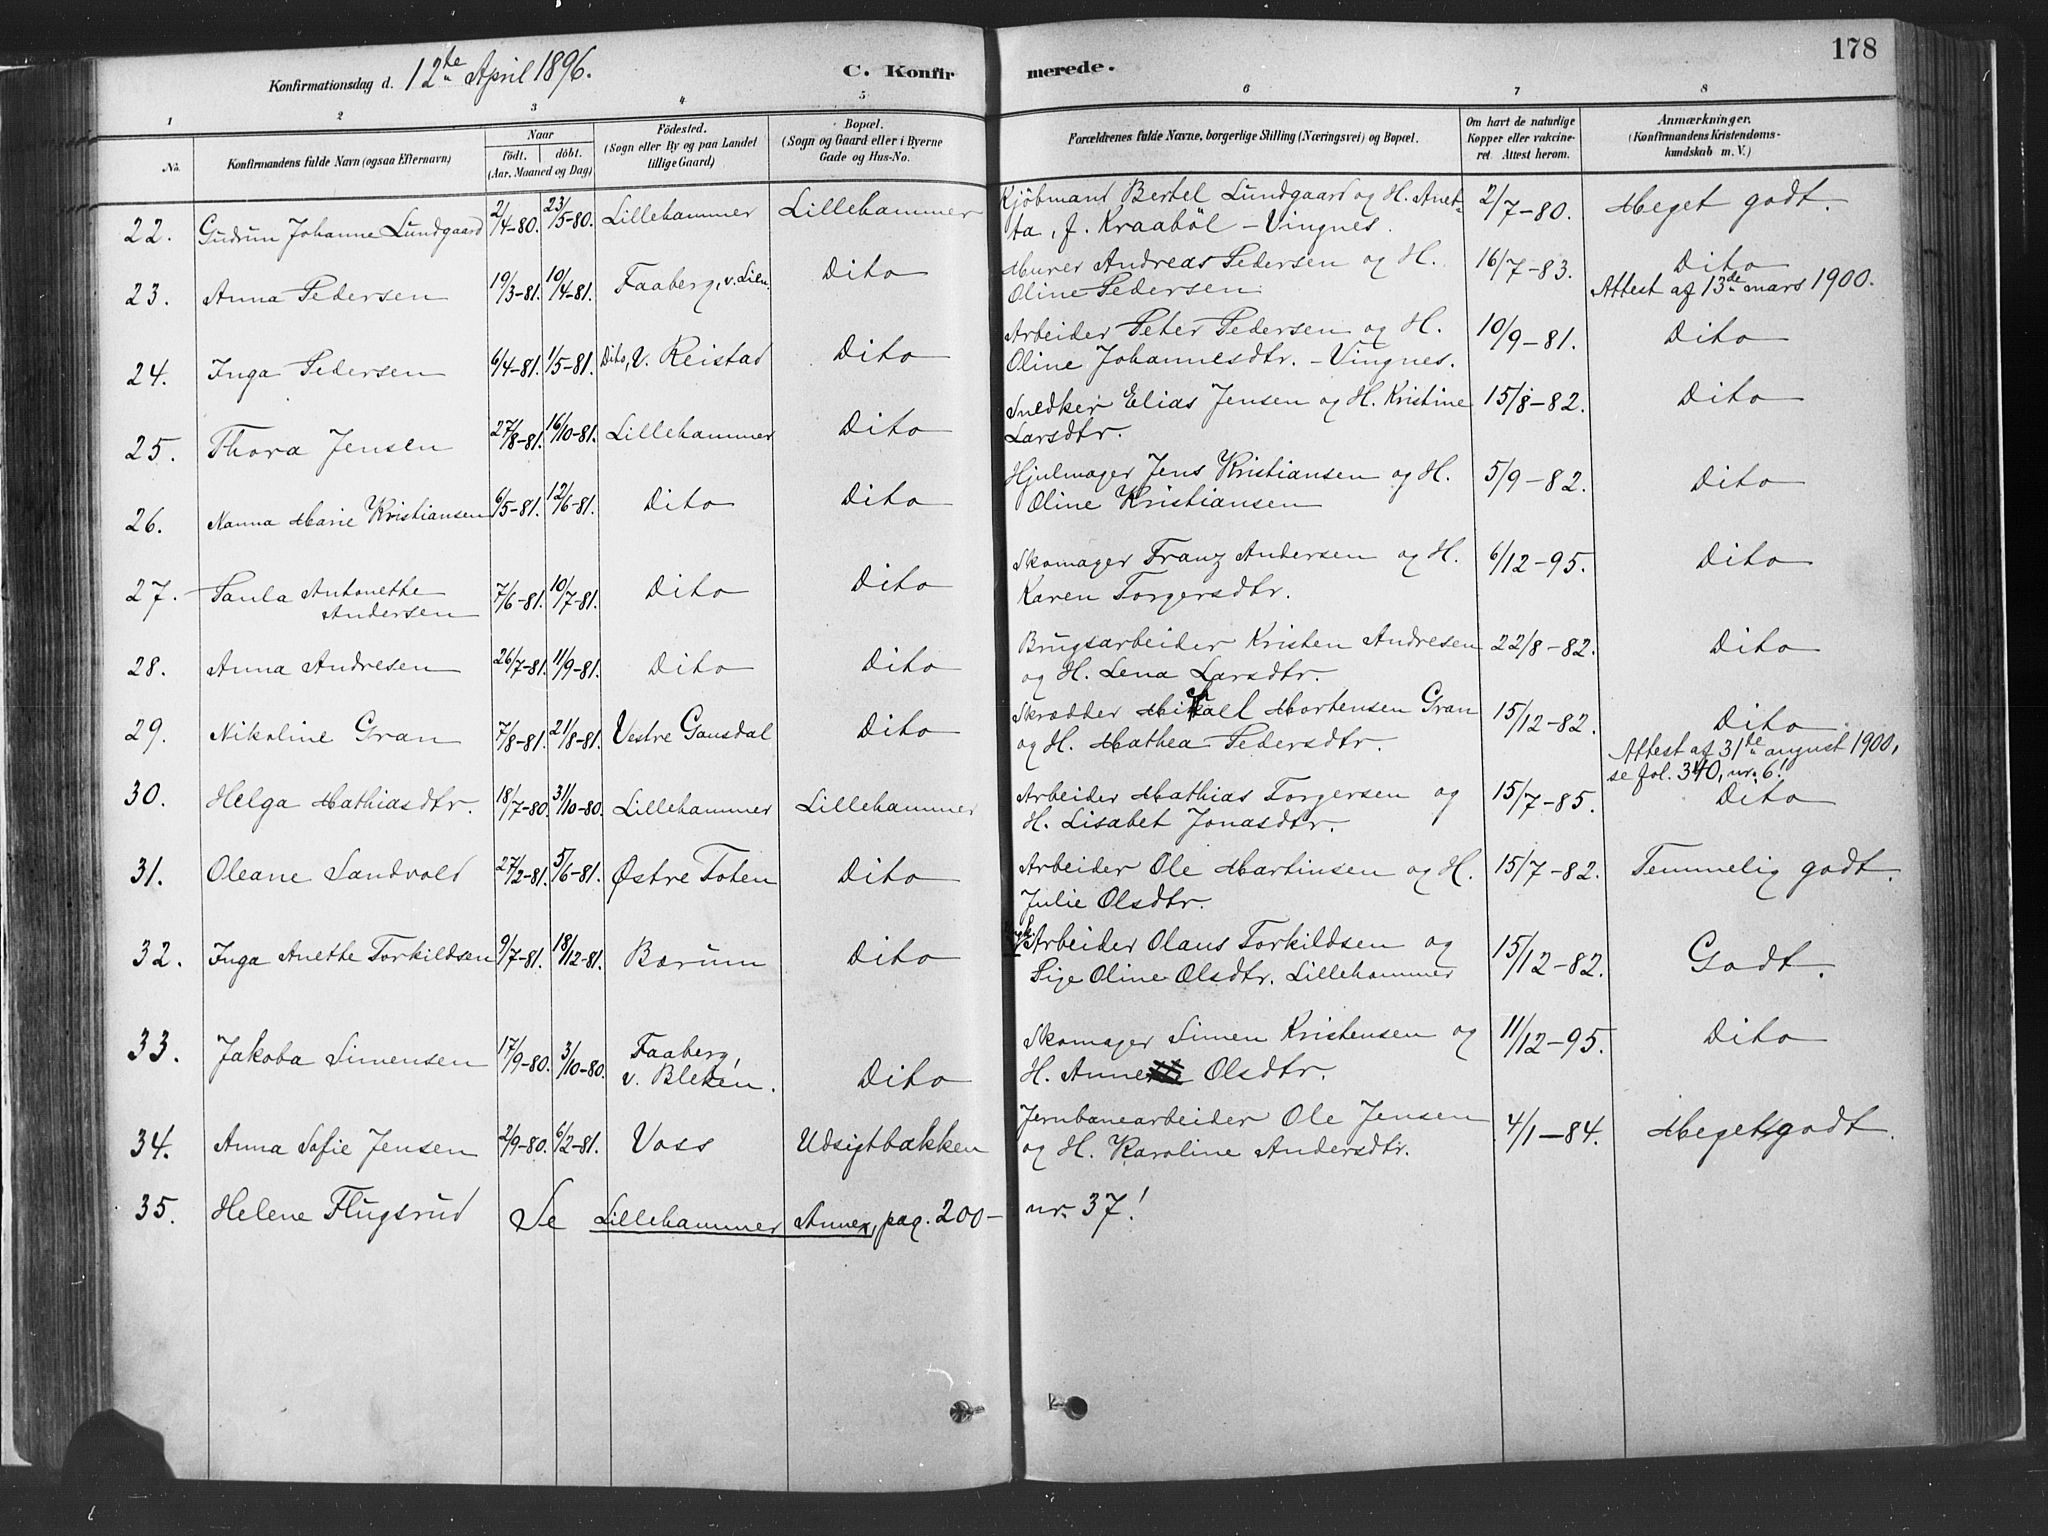 178
Konfirmationsdag d. 12te April 1896. C. Konfirmerede.
1 2 3 4 5 6 7 8
No. Konfirmandens fulde Navn (ogsaa Efternavn) Naar födt. döbt. (Aar, Maaned og Dag) Födested. (Sogn eller By og paa Landet tillige Gaard) Bopæl. (Sogn og Gaard eller i Byerne Gade og Hus-No. Forældrenes fulde Navne, borgerlige Stilling (Næringsvei) og Bopæl. Om havt de naturlige Kopper eller vakcineret Attest herom. Anmærkninger. (Konfirmandens Kristendomskundskab m. V.)
22. Gudrun Johanne Lundgaard 2/4-80. 23/5-80. Lillehammer Lillehammer Kjöbmand Bertel Lundgaard og H. Anetta, f. Kraaböl - Vingnes. 2/7-80. Meget godt.
23. Anna Pedersen 19/3-81. 10/4-81. Faaberg, v. Lien. Dito Murer Andreas Pedersen og H. Oline Pedersen 16/7-83. Dito
Attest af 13de mars 1900.
24. Inga Pedersen 6/4-81. 1/5-81. Dito, v. Reistad Dito Arbeider Peter Pedersen og H. Oline Johannesdtr. - Vingnes. 10/9-81. Dito
25. Thora Jensen 27/8-81. 16/10-81. Lillehammer Dito Snedker Elias Jensen og H. Kristine Larsdtr. 15/8-82. Dito
26. Nanna Marie Kristiansen 6/5-81. 12/6-81. Dito Dito Hjulmager Jens Kristiansen og H. Oline Kristiansen 5/9-82. Dito
27. Paula Antonette Andersen 7/6-81. 10/7-81. Dito Dito Skomager Franz Andersen og H. Karen Torgersdtr. 6/12-95. Dito
28. Anna Andresen 26/7-81. 11/9-81. Dito Dito Brugsarbeider Kristen Andresen og H. Lena Larsdtr. 22/8-82. Dito
29. Nikoline Gran 7/8-81. 21/8-81. Vestre Gausdal Dito Skrædder Mikael Mortensen Gran og H. Mathea Pedersdtr. 15/12-82. Dito
Attest af 31te august 1900, se fol. 340, nr. 6!
30. Helga Mathiasdtr. 18/7-80. 31/10-80. Lillehammer Lillehammer Arbeider Mathias Torgersen og H. Lisabet Jonasdtr. 15/7-85. Dito
31. Oleane Sandvold 27/2-81. 5/6-81. Østre Toten Dito Arbeider Ole Martinsen og H. Julie Olsdtr. 15/7-82. Temmelig godt.
32. Inga Anette Torkildsen 9/7-81. 18/12-81. Bærum Dito Arbeider Olaus Torkildsen og Pige Oline Olsdtr. Lillehammer 15/12-82. Godt.
33. Jakoba Simensen 17/9-80. 3/10-80. Faaberg, v. Bleken. Dito Skomager Simen Kristensen og H. Anne Olsdtr. 11/12-95. Dito
34. Anna Sofie Jensen 2/9-80. 6/2-81. Voss Udsigtbakken Jernbanearbeider Ole Jensen og H. Karoline Andersdtr. 4/1-84. Meget godt.
35. Helene Flugsrud Se Lillehammer Annex, pag. 200 - nr. 37!